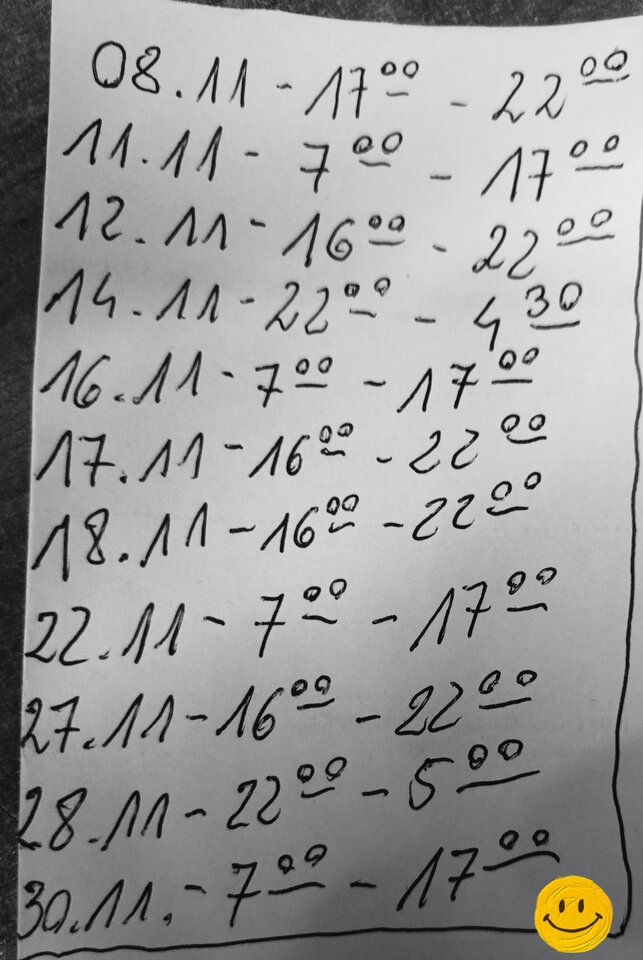 08.11 - 17⁰⁰ - 22⁰⁰
11.11 - 7⁰⁰ - 17⁰⁰
12.11 - 16⁰⁰ - 22⁰⁰
14.11 - 22⁰⁰ - 4³⁰
16.11 - 7⁰⁰ - 17⁰⁰
17.11 - 16⁰⁰ - 22⁰⁰
18.11 - 16⁰⁰ - 22⁰⁰
22.11 - 7⁰⁰ - 17⁰⁰
27.11 - 16⁰⁰ - 22⁰⁰
28.11 - 22⁰⁰ - 5⁰⁰
30.11. - 7⁰⁰ - 17⁰⁰